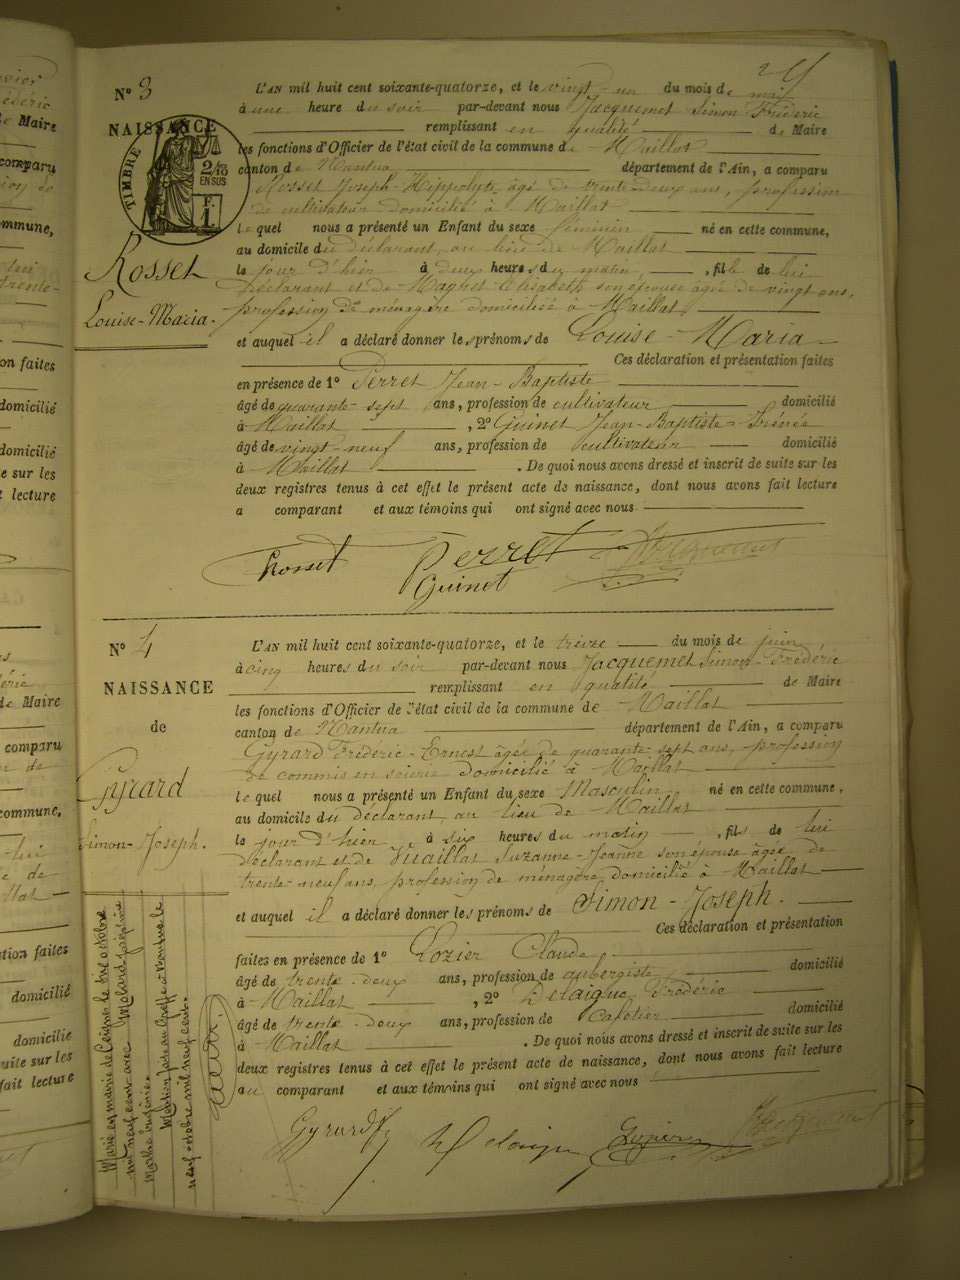 N° 3
NAISSANCE
TIMBRE
2/10
EN SUS
F.
Rosset
Louise-Maria.
L'AN mil huit cent soixante-quatorze, et le vingt-un du mois de mai
à une heure du soir par-devant nous Jacquemet Simon Frédéric
remplissant en qualité de Maire
les fonctions d'Officier de l'état civil de la commune de Maillat
canton de Nantua département de l'Ain, a comparu
Rosset Joseph-Hippolyte âgé de trente deux ans, profession
de cultivateur domicilié à Maillat
lequel nous a présenté un Enfant du sexe féminin né en cette commune,
au domicile du déclarant, au lieu de Maillat
le jour d'hier à deux heures du matin, fille de lui
déclarant et de Elisabeth son épouse âgée de vingt ans,
profession de ménagère domiciliée à Maillat
et auquel il a déclaré donner les prénoms de Louise-Maria
Ces déclaration et présentation faites
en présence de 1° Perret Jean-Baptiste
âgé de quarante-sept ans, profession de cultivateur domicilié
à Maillat, 2° Guinet Jean-Baptiste-Irénée
âgé de vingt-neuf ans, profession de cultivateur domicilié
à Maillat. De quoi nous avons dressé et inscrit de suite sur les
deux registres tenus à cet effet le présent acte de naissance, dont nous avons fait lecture
a comparant et aux témoins qui ont signé avec nous
Rosset Perret Jacquemet
Guinet
N° 4
NAISSANCE
de
Gyrard
Simon-Joseph.
L'AN mil huit cent soixante-quatorze, et le treize du mois de juin
à cinq heures du soir par-devant nous Jacquemet Simon-Frédéric
remplissant en qualité de Maire
les fonctions d'Officier de l'état civil de la commune de Maillat
canton de Nantua département de l'Ain, a comparu
Gyrard Frédéric-Ernest âgée de quarante-sept ans, profession
de commis en soierie domicilié à Maillat
lequel nous a présenté un Enfant du sexe Masculin né en cette commune,
au domicile du déclarant, au lieu de Maillat
le jour d'hier, à six heures du matin, fils de lui
déclarant et de Vuaillat Suzanne-Jeanne son épouse âgée de
trente-neuf ans, profession de ménagère, domiciliée à Maillat
et auquel il a déclaré donner les prénoms de Simon-Joseph.
Ces déclaration et présentation
faites en présence de 1° Lozier Claude
âgé de trente-deux ans, profession de aubergiste domicilié
à Maillat, 2° Delaigue Frédéric
âgé de trente-deux ans, profession de Cafetier domicilié
à Maillat. De quoi nous avons dressé et inscrit de suite sur les
deux registres tenus à cet effet le présent acte de naissance, dont nous avons fait lecture
au comparant et aux témoins qui ont signé avec nous
Gyrard Delaigue Lozier Jacquemet
Marié en mairie de le octobre
mil neuf cent avec
Marthe Eugénie.
Mention faite au Greffe à Nantua le
neuf octobre mil neuf cent.
de Maire
comparu
commune,
faites
domicilié
domicilié
sur les
lecture
de Maire
comparu
commune,
faites
domicilié
domicilié
suite sur les
fait lecture